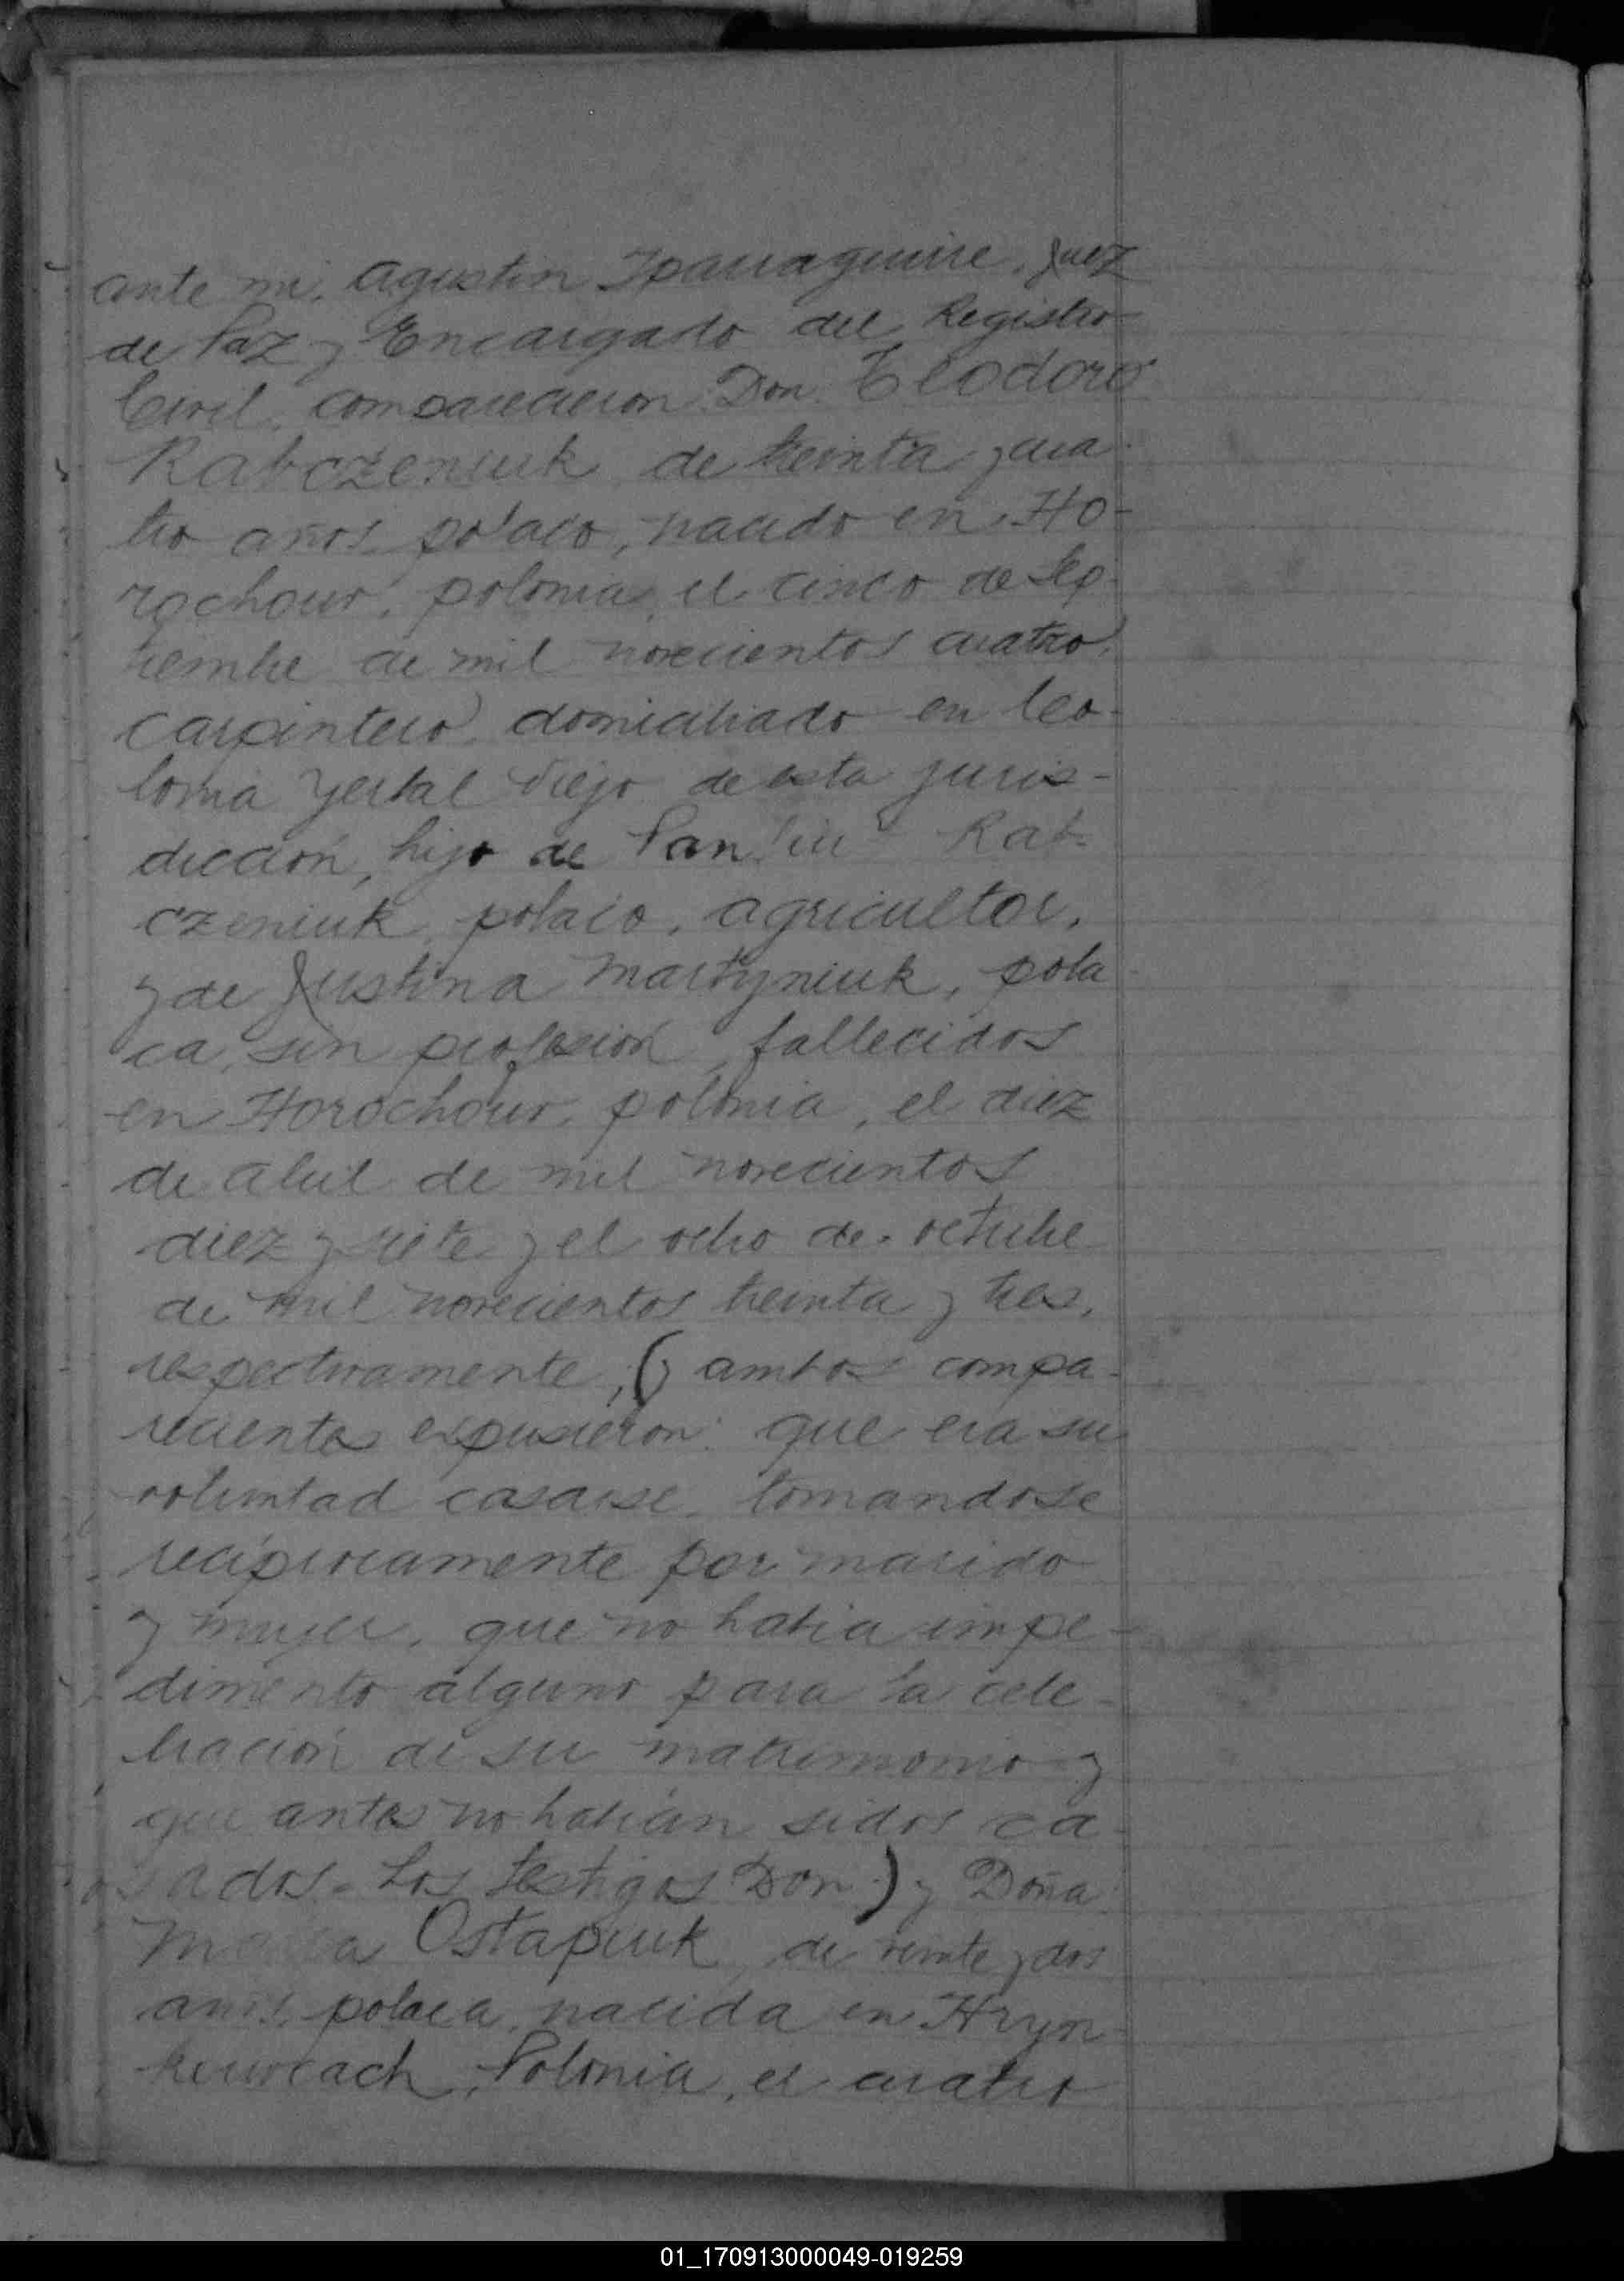 ante mi, Agustin Iparraguirre, Juez
de Paz y Encargado del Registro
Civil, comparecieron Don Teodoro
Rabczeniuk de treinta y cua
tro años, polaco, nacido en Ho-
rochow, polonia, el cinco de Sep-
tiembre de mil novecientos cuatro,
carpintero, domiciliado en Co-
lonia Yerbal Viejo de esta juris-
dicción, hijo de Rab-
czeniuk, polaco, agricultor,
y de Justina Martyniuk, pola
ca, sin profesión, fallecidos
en Horochow, polonia, el diez
de abril de mil novecientos
diez y siete y el ocho de octubre
de mil novecientos treinta y tres,
respectivamente, (y ambos compa-
recientes expusieron: que era su
voluntad casarse, tomandose
recíprocamente por marido
y mujer, que no habia impe-
dimento alguno para la cele-
bración de su matrimonio y
que antes no habían sidos ca-
sados. Los testigos Don) y Doña
Ostapiuk, de veinte y dos
años, polaca, nacida en Hryn-
Polonia, el cuatro
01_170913000049-019259